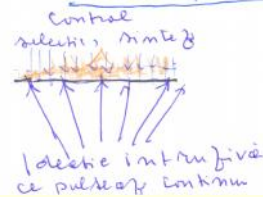 Control
selectie, sinteză
Ideatie intruzivă
ce pulsează continuu